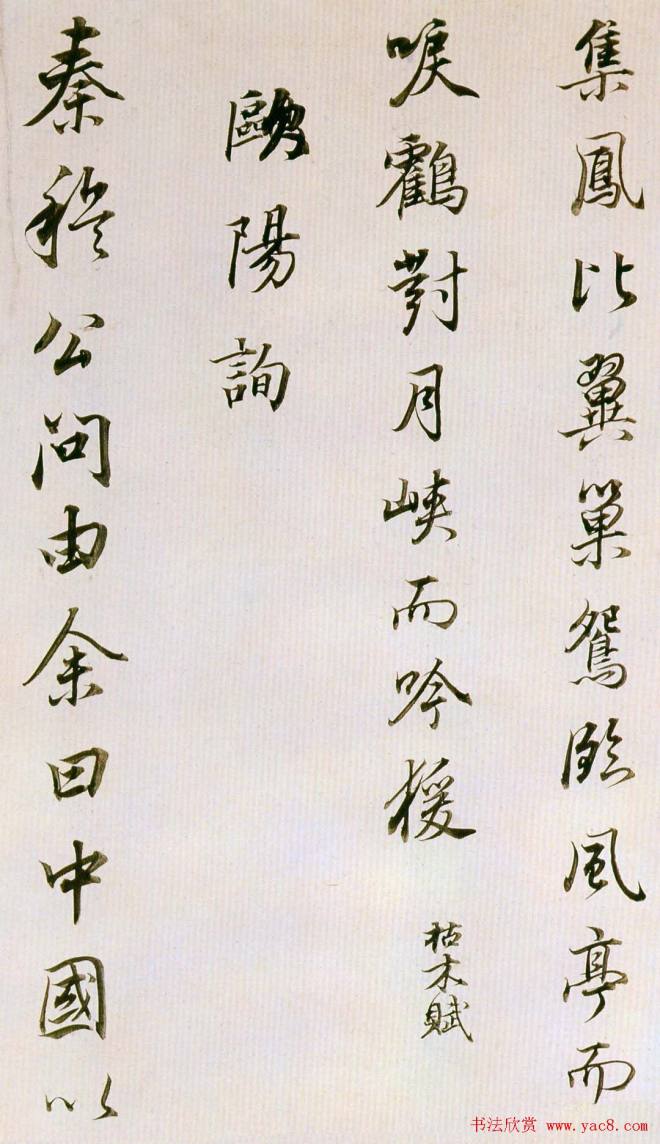 集鳳比翼巢鴛臨風亭而
唳鶴對月峽而吟猨
枯木賦
歐陽詢
秦穆公問由余曰中國以
书法欣赏 www.yac8.com